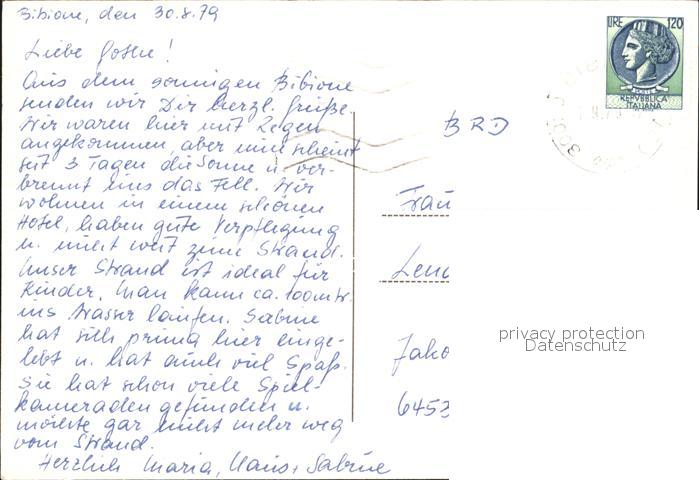 Bibione, den 30.8.79
Liebe
Aus dem sonnigen Bibione
senden wir Dir herzl. Grüße.
Wir waren hier mit Regen
angekommen, aber nun scheint
seit 3 Tagen die Sonne u. ver-
brennt uns das Fell. Wir
wohnen in einem schönen
Hotel, haben gute Verpflegung
u. nicht weit zum Strand.
Unser Strand ist ideal für
Kinder. Man kann ca. 100 m
ins Wasser laufen. Sabine
hat sich prima hier einge-
lebt u. hat auch viel Spaß.
Sie hat schon viele Spiel-
kameraden gefunden u.
möchte gar nicht mehr weg
vom Strand.
Herzlich Maria, Hans + Sabine
LIRE 120
REPVBBLICA
ITALIANA
BRD
Frau
Lena
Jako
6453
privacy protection
Datenschutz